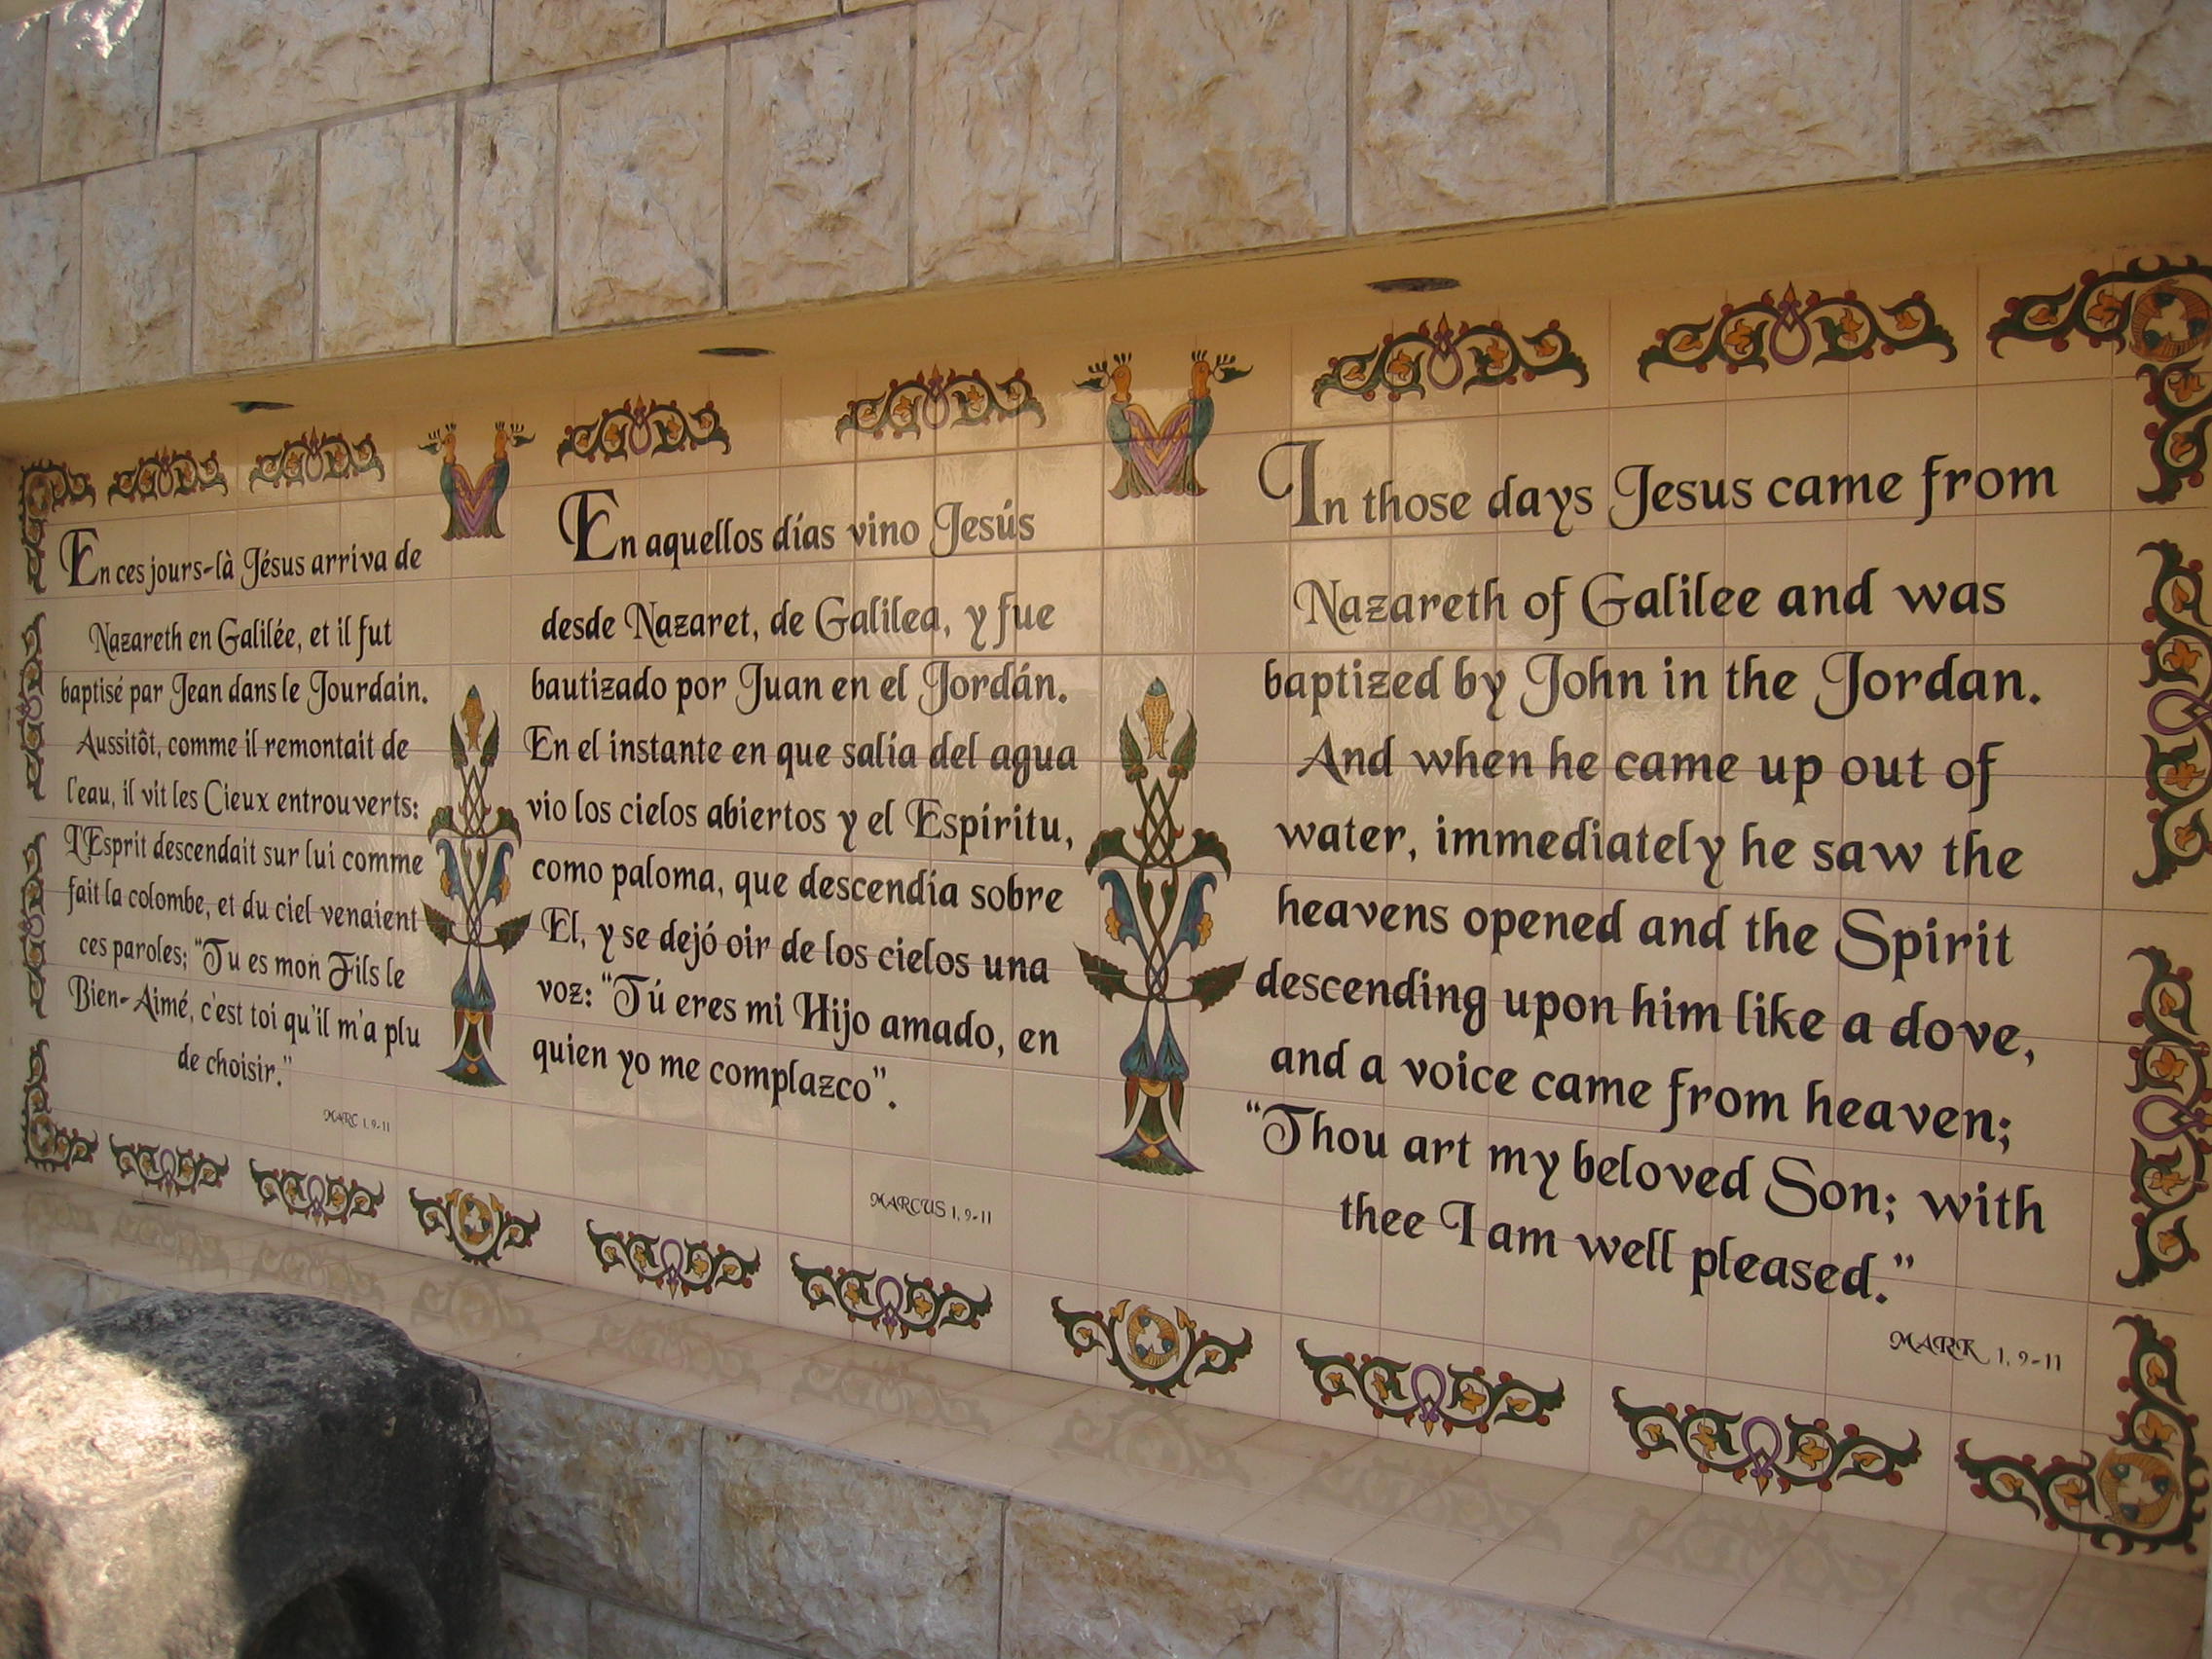 En ces jours-là Jésus arriva de
Nazareth en Galilée, et il fut
baptisé par Jean dans le Jourdain.
Aussitôt, comme il remontait de
l'eau, il vit les Cieux entrouverts:
L'Esprit descendait sur lui comme
fait la colombe, et du ciel venaient
ces paroles; "Tu es mon Fils le
Bien-Aimé, c'est toi qu'il m'a plu
de choisir."
MARC 1, 9-11
En aquellos días vino Jesús
desde Nazaret, de Galilea, y fue
bautizado por Juan en el Jordán.
En el instante en que salía del agua
vio los cielos abiertos y el Espíritu,
como paloma, que descendía sobre
El, y se dejó oir de los cielos una
voz: "Tú eres mi Hijo amado, en
quien yo me complazco".
MARCUS 1, 9-11
In those days Jesus came from
Nazareth of Galilee and was
baptized by John in the Jordan.
And when he came up out of
water, immediately he saw the
heavens opened and the Spirit
descending upon him like a dove,
and a voice came from heaven;
"Thou art my beloved Son; with
thee I am well pleased."
MARK 1, 9-11